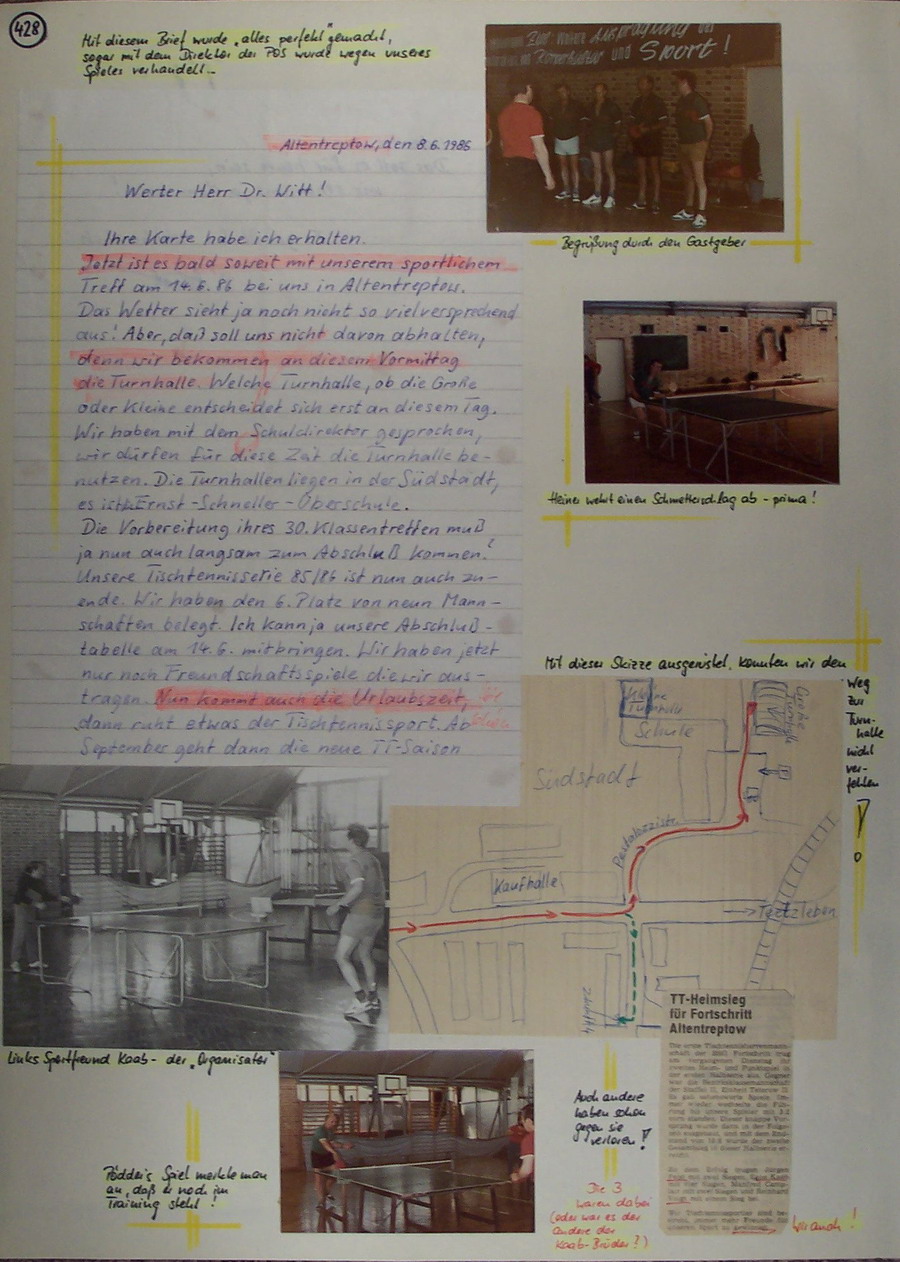 428
Mit diesem Brief wurde „alles perfekt" gemacht,
sogar mit dem Direktor der POS wurde wegen unseres
Spieles verhandelt –
Altentreptow, den 8.6.1986
Werter Herr Dr. Witt!
Ihre Karte habe ich erhalten.
Jetzt ist es bald soweit mit unserem sportlichem
Treff am 14.6.86 bei uns in Altentreptow.
Das Wetter sieht ja noch nicht so vielversprechend
aus! Aber, daß soll uns nicht davon abhalten,
denn wir bekommen an diesem Vormittag
die Turnhalle. Welche Turnhalle, ob die Große
oder Kleine entscheidet sich erst an diesem Tag.
Wir haben mit dem Schuldirektor gesprochen,
wir dürfen für diese Zeit die Turnhalle be-
nutzen. Die Turnhallen liegen in der Südstadt,
es ist Ernst-Schneller-Oberschule.
Die Vorbereitung ihres 30. Klassentreffen muß
ja nun auch langsam zum Abschluß kommen!
Unsere Tischtennisserie 85/86 ist nun auch zu-
ende. Wir haben den 6. Platz von neun Mann-
schaften belegt. Ich kann ja unsere Abschluß-
tabelle am 14.6. mitbringen. Wir haben jetzt
nur noch Freundschaftsspiele die wir aus-
tragen. Nun kommt auch die Urlaubszeit,
dann ruht etwas der Tischtennissport. Ab
September geht dann die neue TT-Saison
Zur weiteren Ausprägung der
Körperkultur und Sport!
Begrüßung durch den Gastgeber
Heiner wehrt einen Schmetterschlag ab – prima!
Mit dieser Skizze ausgerüstet, konnten wir den
Weg
zur
Turn-
halle
nicht
ver-
fehlen
!
Kleine
Turnhalle
Große
Turnhalle
Schule
Südstadt
Pestalozzistr.
Kaufhalle
→ Tetzleben
Links Sportfreund Kaab – der „Organisator"
Pödder's Spiel merkte man
an, daß er noch im
Training steht!
Auch andere
haben schon
gegen sie
verloren!
Die 3
waren dabei
(oder war es der
andere der
Kaab-Brüder?)
TT-Heimsieg
für Fortschritt
Altentreptow
Wir auch!